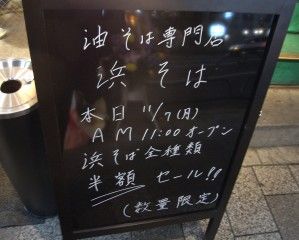 油そば専門店
浜そば
本日 11/7(月)
AM 11:00 オープン
浜そば全種類
半額 セール!!
(数量限定)